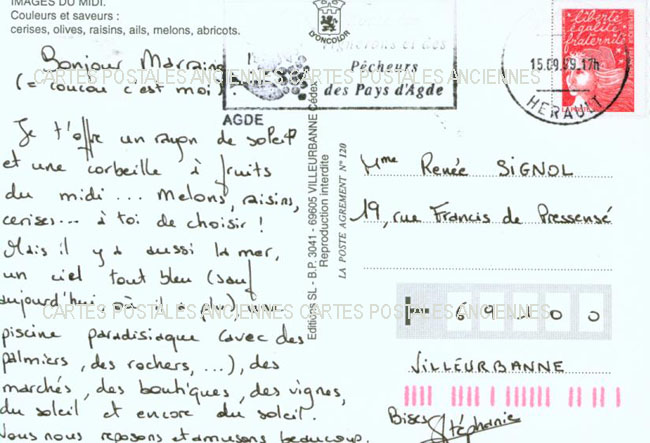 IMAGES DU MIDI.
Couleurs et saveurs :
cerises, olives, raisins, ails, melons, abricots.
Bonjour Marraine
(= coucou c'est moi)
Je t'offre un rayon de soleil
et une corbeille à fruits
du midi ... Melons, raisins,
cerises... à toi de choisir !
Mais il y a aussi la mer,
un ciel tout bleu (sauf
aujourd'hui, où il a plu) une
piscine paradisiaque (avec des
palmiers, des rochers, ...), des
marchés, des boutiques, des vignes,
du soleil et encore du soleil.
Nous nous reposons et amusons beaucoup.
Bises
Stéphanie
D'ONCOLOR
Vignerons et des
Pêcheurs
des Pays d'Agde
AGDE
15.09.99.17h
HERAULT
liberté
égalité
fraternité
Editions SL - B.P. 3041 - 69605 VILLEURBANNE Cédex
Reproduction interdite
LA POSTE AGREMENT N° 120
Mme Renée SIGNOL
19, rue Francis de Pressensé
69100
VILLEURBANNE
CARTES POSTALES ANCIENNES CARTES POSTALES ANCIENNES
CARTES POSTALES ANCIENNES CARTES POSTALES ANCIENNES